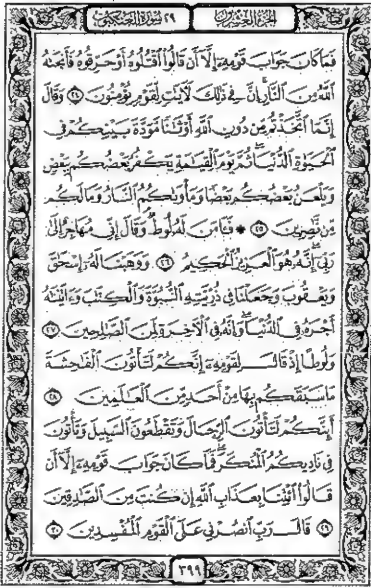 الجزء العشرون ٢٩ سورة العنكبوت
فَمَا كَانَ جَوَابَ قَوْمِهِ إِلَّا أَن قَالُوا اقْتُلُوهُ أَوْ حَرِّقُوهُ فَأَنجَىٰهُ
اللَّهُ مِنَ النَّارِ إِنَّ فِي ذَٰلِكَ لَآيَاتٍ لِّقَوْمٍ يُؤْمِنُونَ ٢٤ وَقَالَ
إِنَّمَا اتَّخَذْتُم مِّن دُونِ اللَّهِ أَوْثَانًا مَّوَدَّةَ بَيْنِكُمْ فِي
الْحَيَوٰةِ الدُّنْيَا ثُمَّ يَوْمَ الْقِيَامَةِ يَكْفُرُ بَعْضُكُم بِبَعْضٍ
وَيَلْعَنُ بَعْضُكُم بَعْضًا وَمَأْوَىٰكُمُ النَّارُ وَمَا لَكُم
مِّن نَّاصِرِينَ ٢٥ ۞ فَـَٔامَنَ لَهُ لُوطٌ وَقَالَ إِنِّي مُهَاجِرٌ إِلَىٰ
رَبِّي إِنَّهُ هُوَ الْعَزِيزُ الْحَكِيمُ ٢٦ وَوَهَبْنَا لَهُ إِسْحَٰقَ
وَيَعْقُوبَ وَجَعَلْنَا فِي ذُرِّيَّتِهِ النُّبُوَّةَ وَالْكِتَٰبَ وَءَاتَيْنَٰهُ
أَجْرَهُ فِي الدُّنْيَا وَإِنَّهُ فِي الْءَاخِرَةِ لَمِنَ الصَّٰلِحِينَ ٢٧
وَلُوطًا إِذْ قَالَ لِقَوْمِهِ إِنَّكُمْ لَتَأْتُونَ الْفَٰحِشَةَ
مَا سَبَقَكُم بِهَا مِنْ أَحَدٍ مِّنَ الْعَٰلَمِينَ ٢٨
أَئِنَّكُمْ لَتَأْتُونَ الرِّجَالَ وَتَقْطَعُونَ السَّبِيلَ وَتَأْتُونَ
فِي نَادِيكُمُ الْمُنكَرَ فَمَا كَانَ جَوَابَ قَوْمِهِ إِلَّا أَن
قَالُوا ائْتِنَا بِعَذَابِ اللَّهِ إِن كُنتَ مِنَ الصَّٰدِقِينَ
٢٩ قَالَ رَبِّ انصُرْنِي عَلَى الْقَوْمِ الْمُفْسِدِينَ ٣٠
٣٩٩